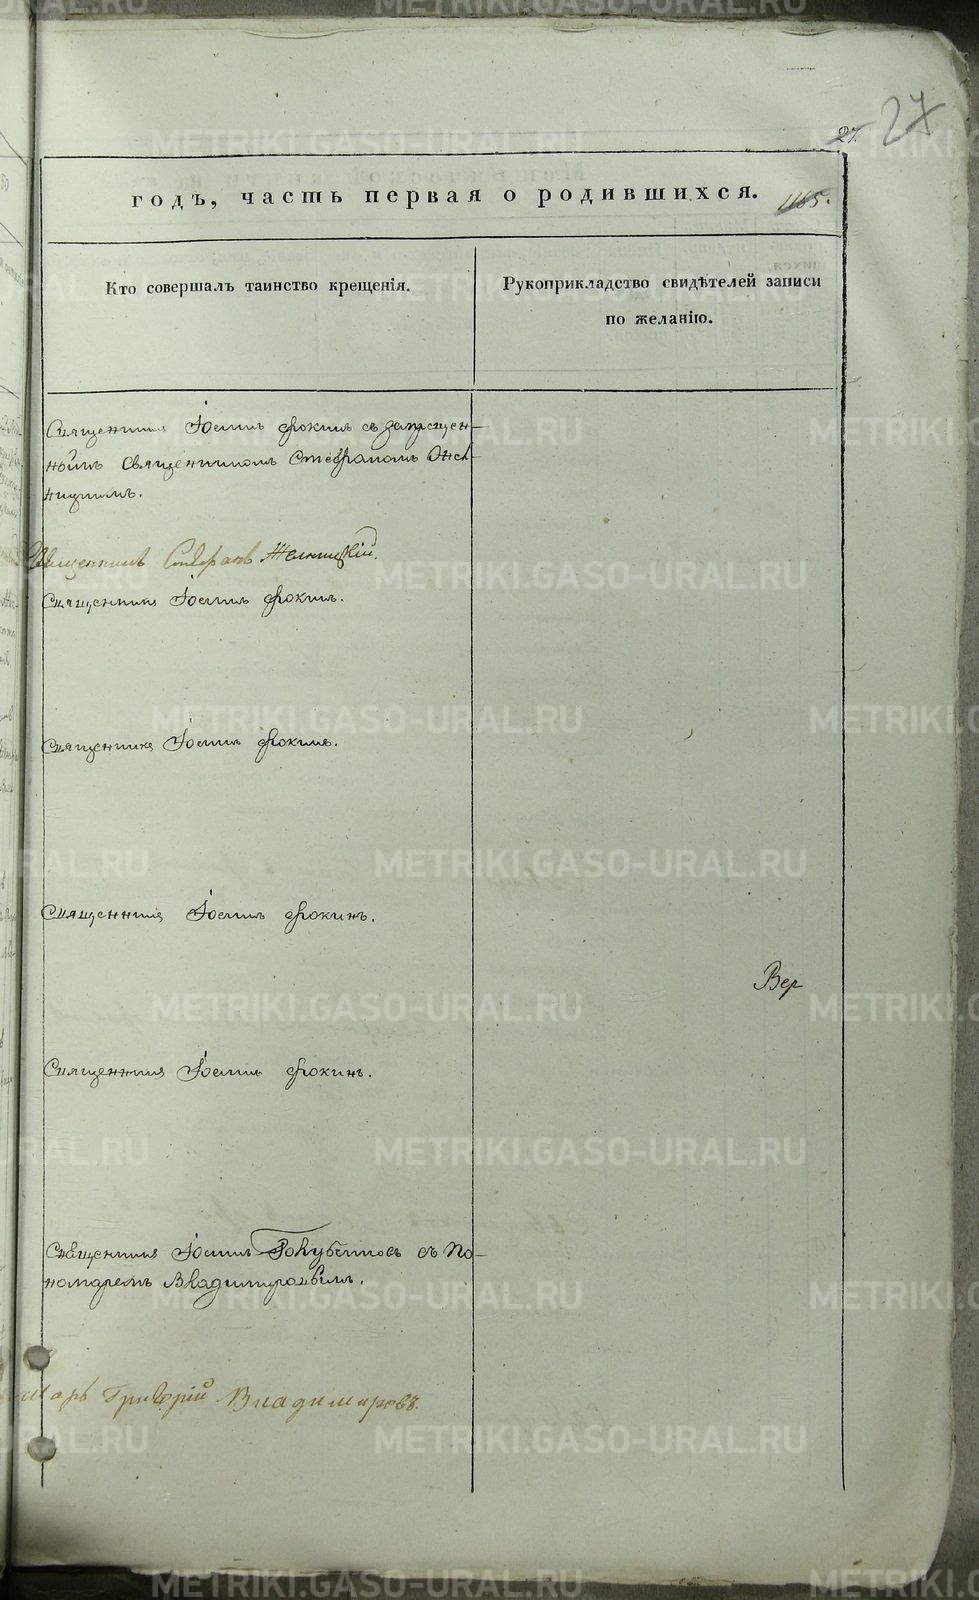 27. 27
годъ, часть первая о родившихся. 1165.
Кто совершалъ таинство крещенія.
Рукоприкладство свидѣтелей записи
по желанію.
Священникъ Іосифъ Фокинъ съ запрещен-
нымъ Священникомъ Стефаномъ
Священникъ Стефанъ
Священникъ Іосифъ Фокинъ.
Священникъ Іосифъ Фокинъ.
Священникъ Іосифъ Фокинъ.
Вер
Священникъ Іосифъ Фокинъ.
Священникъ Іосифъ съ По-
номаремъ Владимировымъ.
Григорій Владимировъ.
METRIKI.GASO-URAL.RU